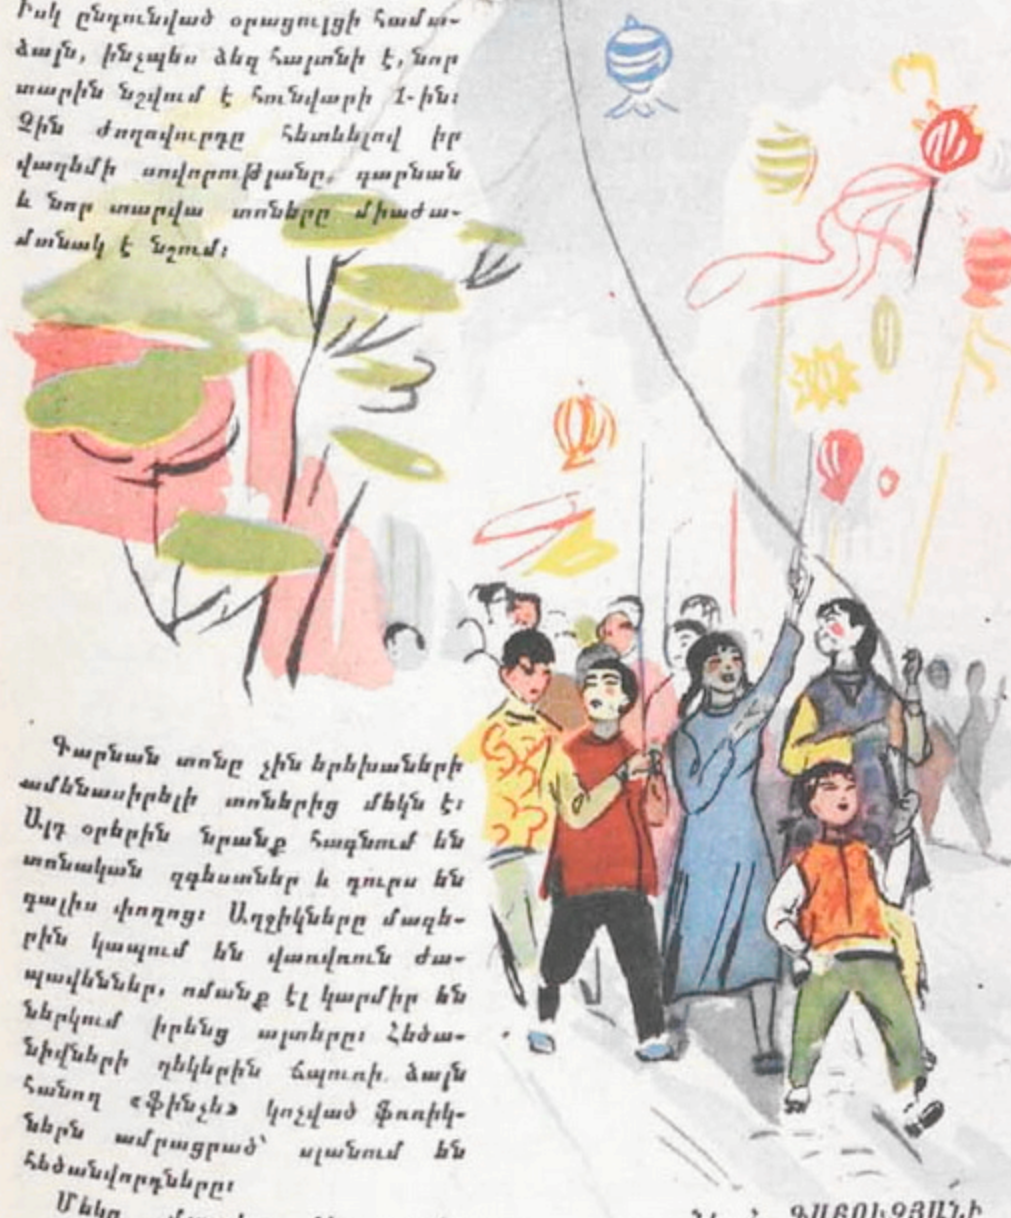 Իսկ ընդունված օրացույցի համա-
ձայն, ինչպես ձեզ հայտնի է, նոր
տարին նշվում է հունվարի 1-ին։
Չին ժողովուրդը հետևելով իր
վաղեմի սովորությանը, գարնան
և նոր տարվա տոները միաժա-
մանակ է նշում։
Գարնան տոնը չին երեխաների
ամենասիրելի տոներից մեկն է։
Այդ օրերին նրանք հագնում են
տոնական զգեստներ և դուրս են
գալիս փողոց։ Աղջիկները մազե-
րին կապում են վառվռուն ժա-
պավեններ, ոմանք էլ կարմիր են
ներկում իրենց այտերը։ Հեծա-
նիվների ղեկերին ճպուռի ձայն
հանող «ֆինչե» կոչված ֆռռիկ-
ներն ամրացրած՝ սլանում են
հեծանվորդները։
Մեկը